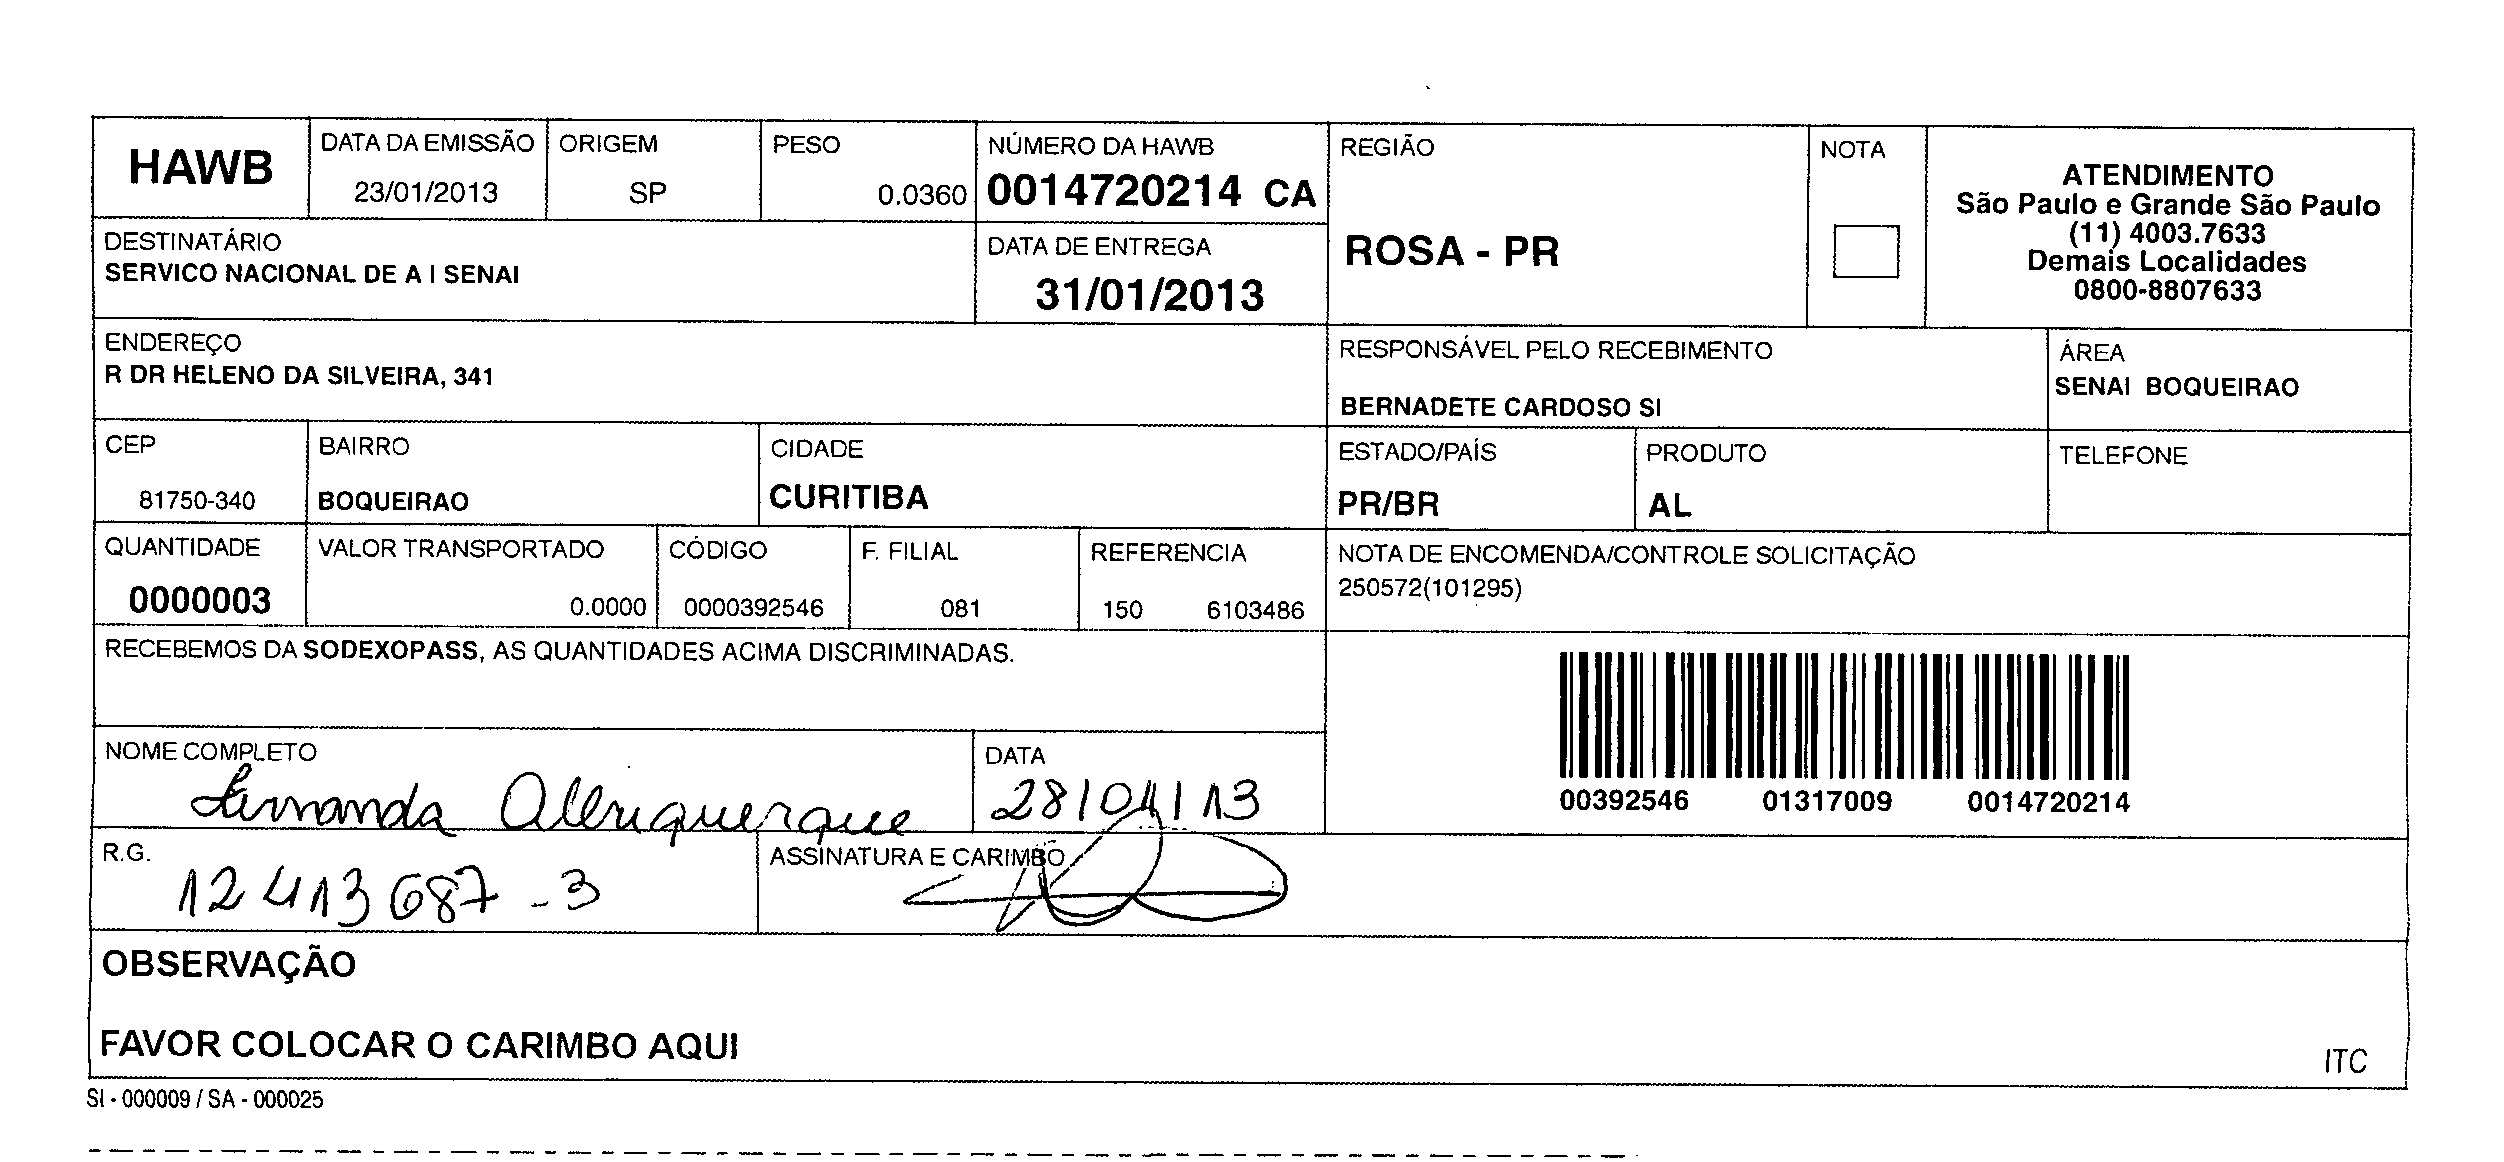 HAWB
DATA DA EMISSÃO
23/01/2013
ORIGEM
SP
PESO
0.0360
NÚMERO DA HAWB
0014720214 CA
REGIÃO
ROSA - PR
NOTA
ATENDIMENTO
São Paulo e Grande São Paulo
(11) 4003.7633
Demais Localidades
0800-8807633
DESTINATÁRIO
SERVICO NACIONAL DE A I SENAI
DATA DE ENTREGA
31/01/2013
ENDEREÇO
R DR HELENO DA SILVEIRA, 341
RESPONSÁVEL PELO RECEBIMENTO
BERNADETE CARDOSO SI
ÁREA
SENAI BOQUEIRAO
CEP
81750-340
BAIRRO
BOQUEIRAO
CIDADE
CURITIBA
ESTADO/PAÍS
PR/BR
PRODUTO
AL
TELEFONE
QUANTIDADE
0000003
VALOR TRANSPORTADO
0.0000
CÓDIGO
0000392546
F. FILIAL
081
REFERENCIA
150 6103486
NOTA DE ENCOMENDA/CONTROLE SOLICITAÇÃO
250572(101295)
RECEBEMOS DA SODEXOPASS, AS QUANTIDADES ACIMA DISCRIMINADAS.
00392546 01317009 0014720214
NOME COMPLETO
Fernanda Albuquerque
DATA
28/01/13
R.G.
12413687-3
ASSINATURA E CARIMBO
OBSERVAÇÃO
FAVOR COLOCAR O CARIMBO AQUI
ITC
SI - 000009 / SA - 000025